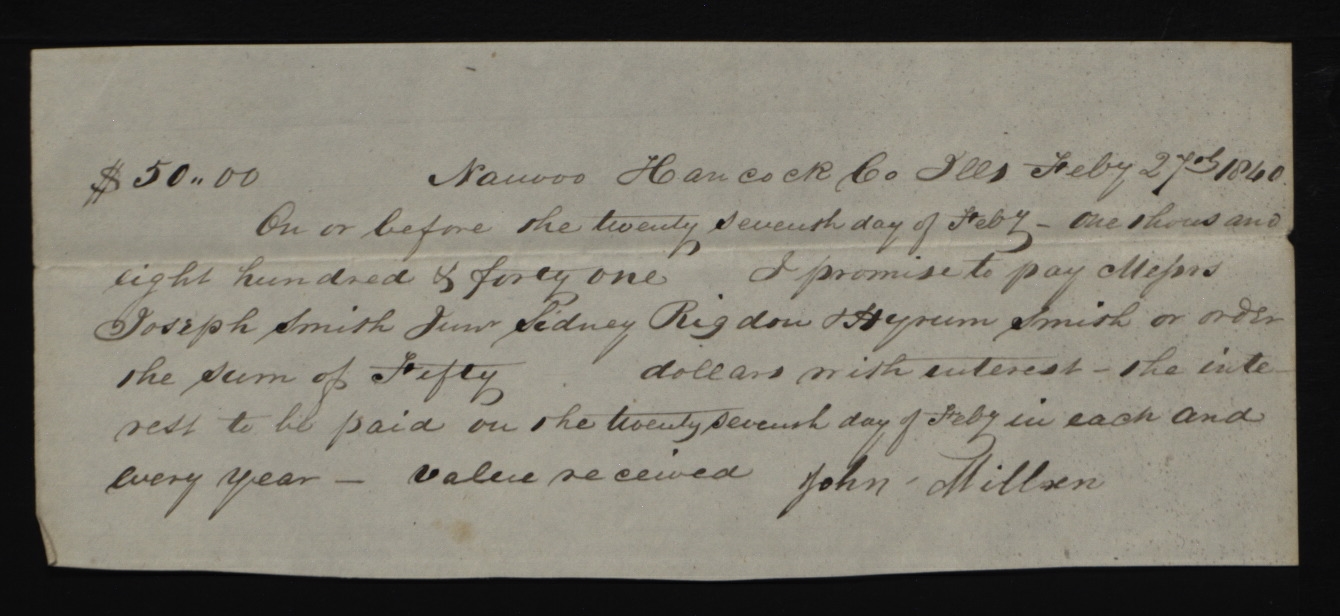 $50.,00 Nauvoo Hancock Co Ills Feby 27th 1840.
On or before the twenty seventh day of Feby – one thousand
eight hundred & forty one I promise to pay Messrs
Joseph Smith Junr Sidney Rigdon & Hyrum Smith or order
the sum of Fifty dollars with interest – the inte–
rest to be paid on the twenty seventh day of Feby in each and
every year – value received John Millen